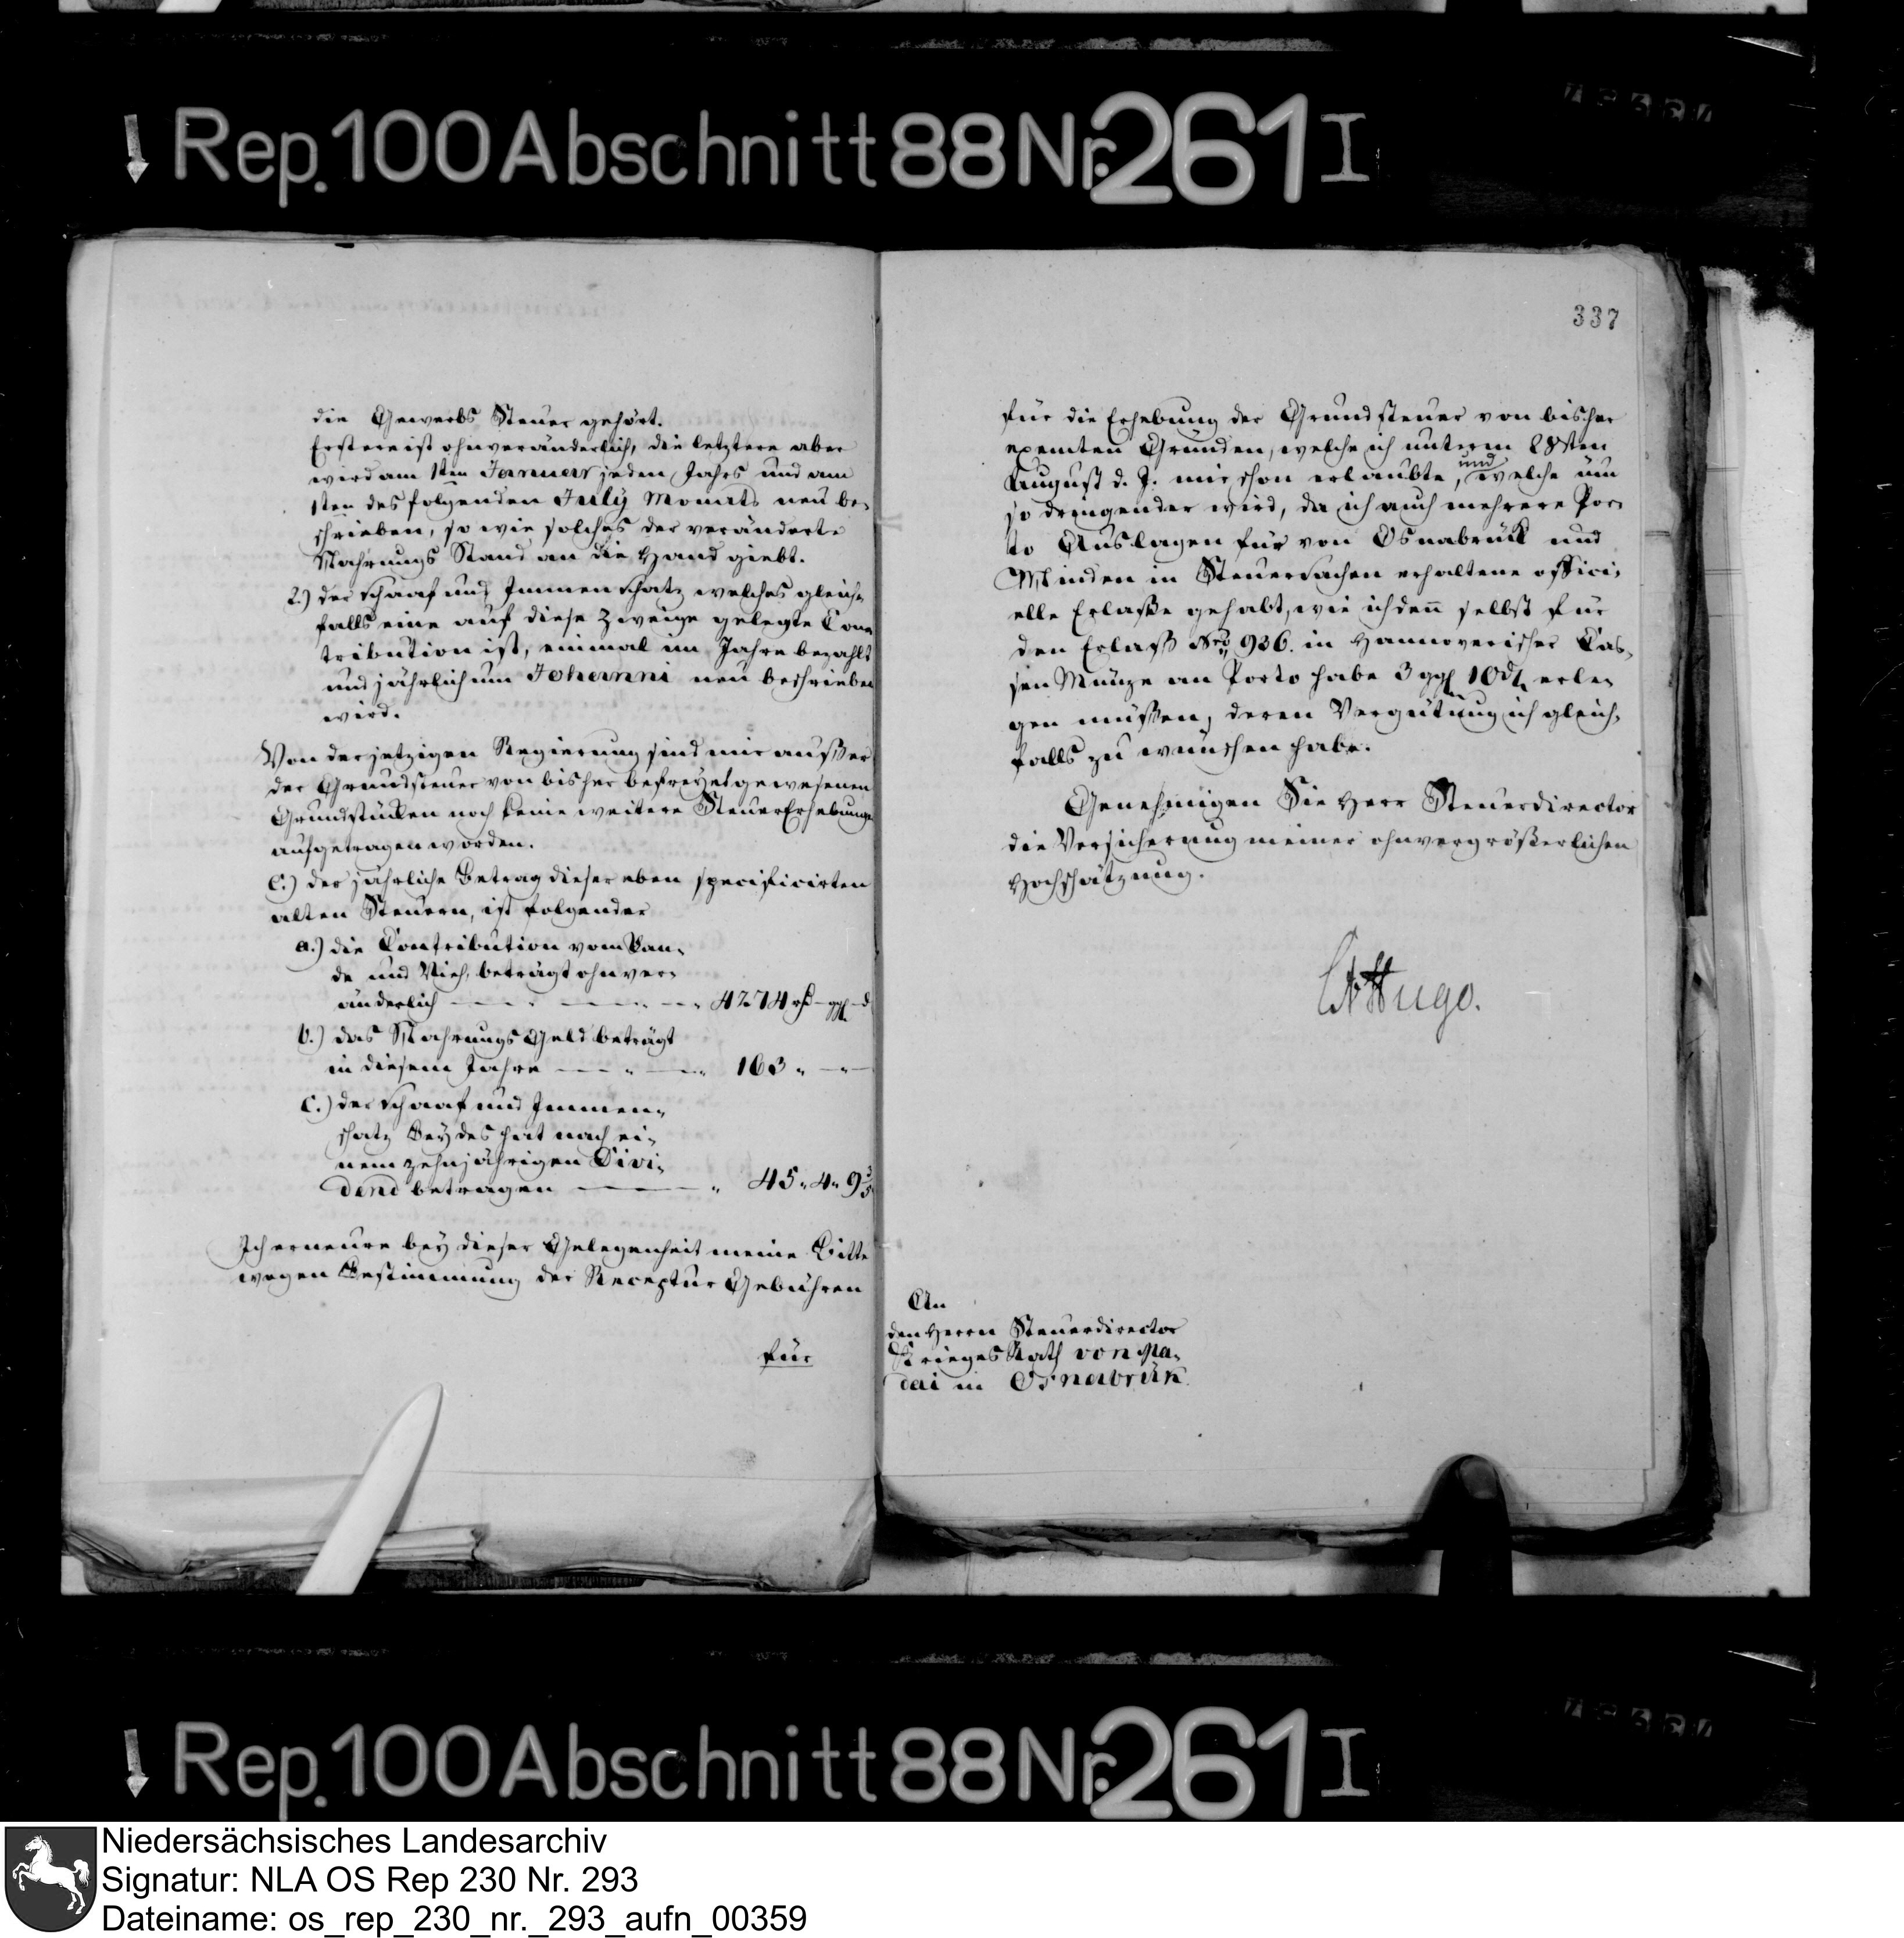 Rep. 100 Abschnitt 88 Nr. 261 I
die Gewerbs Steuer gehört.
Erstere ist ohnveränderlich, die letztere aber
wird am 1ten Januar jeden Jahrs und am
1sten des folgenden July Monats neu be-
schrieben, so wie solches der veränderte
Nahrungs Stand an die Hand giebt.
2.) der Schaaf und Immenschatz welches gleich-
falls eine auf diese Zweige gelegte Con-
tribution ist, einmal im Jahre bezahlt
und jährlich um Johanni neu beschrieben
wird.
Von der jetzigen Regierung sind mir außer
der Grundsteuer von bisher befreyet gewesenen
Grundstücken noch keine weitere Steuer Erhebungen
aufgetragen worden.
C.) der jährliche Betrag dieser eben specificirten
alten Steuern, ist folgender
a.) die Contribution vom Lan-
de und Vieh, beträgt ohnver-
änderlich — — 4274 rth — ggl — d
b.) das Nahrungs Geld beträgt
in diesem Jahre — " — " 163 " — " —
c.) der Schaaf und Immen-
schatz Beydes hat nach ei-
nem zehnjährigen Divi-
dend betragen — " 45 " 4 " 9 3/5
Ich erneure bey dieser Gelegenheit meine Bitte
wegen Bestimmung der Receptur Gebühren
für
337
für die Erhebung der Grundsteuer von bisher
exemten Gründen, welche ich unterm 28sten
August d. J. mir schon erlaubte, und welche um
so dringender wird, da ich auch mehrere Por-
to Auslagen für von Osnabrück und
Minden in Steuersachen erhaltene offici-
elle Erlaße gehabt, wie ich denn selbst für
den Erlaß Nro 936. in Hannoverischer Cas-
sen Münze an Porto habe 3 ggl 10 d erle-
gen müßen, deren Vergütung ich gleich-
falls zu wünschen habe.
Genehmigen Sie Herr Steuerdirector
die Versicherung meiner ohnvergrößerlichen
Hochschätzung.
Hugo.
An
den Herrn Steuerdirector
Krieges Rath von Ma-
dai in Osnabrük
Rep. 100 Abschnitt 88 Nr. 261 I
Niedersächsisches Landesarchiv
Signatur: NLA OS Rep 230 Nr. 293
Dateiname: os_rep_230_nr._293_aufn_00359